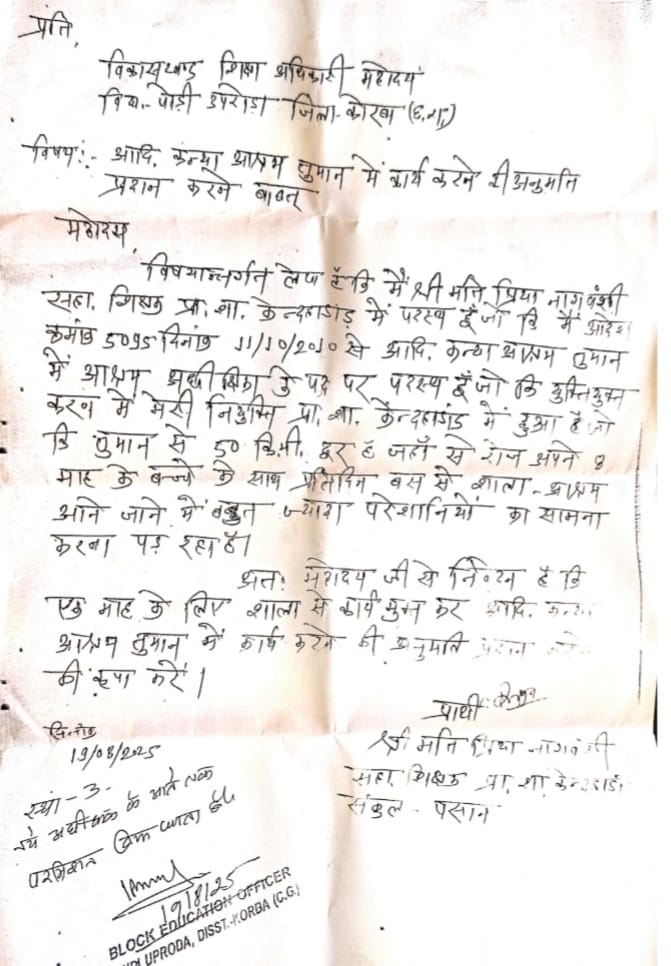 प्रति,
विकासखण्ड शिक्षा अधिकारी महोदय
विख.-पोड़ी उपरोड़ा जिला-कोरबा (छ.ग.)
विषय:- आदि. कन्या आश्रम तुमान में कार्य करने की अनुमति
प्रदान करने बाबत्
महोदय,
विषयान्तर्गत लेख है कि मैं श्री मति प्रिया नागवंशी
सहा. शिक्षक प्रा. शा. केन्दहाडांड़ में पदस्थ हूँ जो कि मैं आदेश
क्रमांक 5095 दिनांक 11/10/2010 से आदि. कन्या आश्रम तुमान
में आश्रम अधीक्षिका के पद पर पदस्थ हूँ जो कि युक्तियुक्त
करण में मेरी नियुक्ति प्रा. शा. केन्दहाडांड में हुआ है जो
कि तुमान से 50 कि.मी. दूर है जहाँ से रोज अपने 8
माह के बच्चे के साथ प्रतिदिन बस से शाला-आश्रम
आने जाने में बहुत ज्यादा परेशानियों का सामना
करना पड़ रहा है।
अतः महोदय जी से निवेदन है कि
एक माह के लिए शाला से कार्य मुक्त कर आदि. कन्या
आश्रम तुमान में कार्य करने की अनुमति प्रदान करने
की कृपा करें।
प्रार्थी
श्री मति प्रिया नागवंशी
सहा. शिक्षक प्रा. शा. केन्दहाडांड
संकुल - पसान
दिनांक
19/08/2025
स्था-3-
नये अधीक्षक के आते तक
किया जाता है।
19/8/25
BLOCK EDUCATION OFFICER
UPRODA, DISST.-KORBA (C.G.)